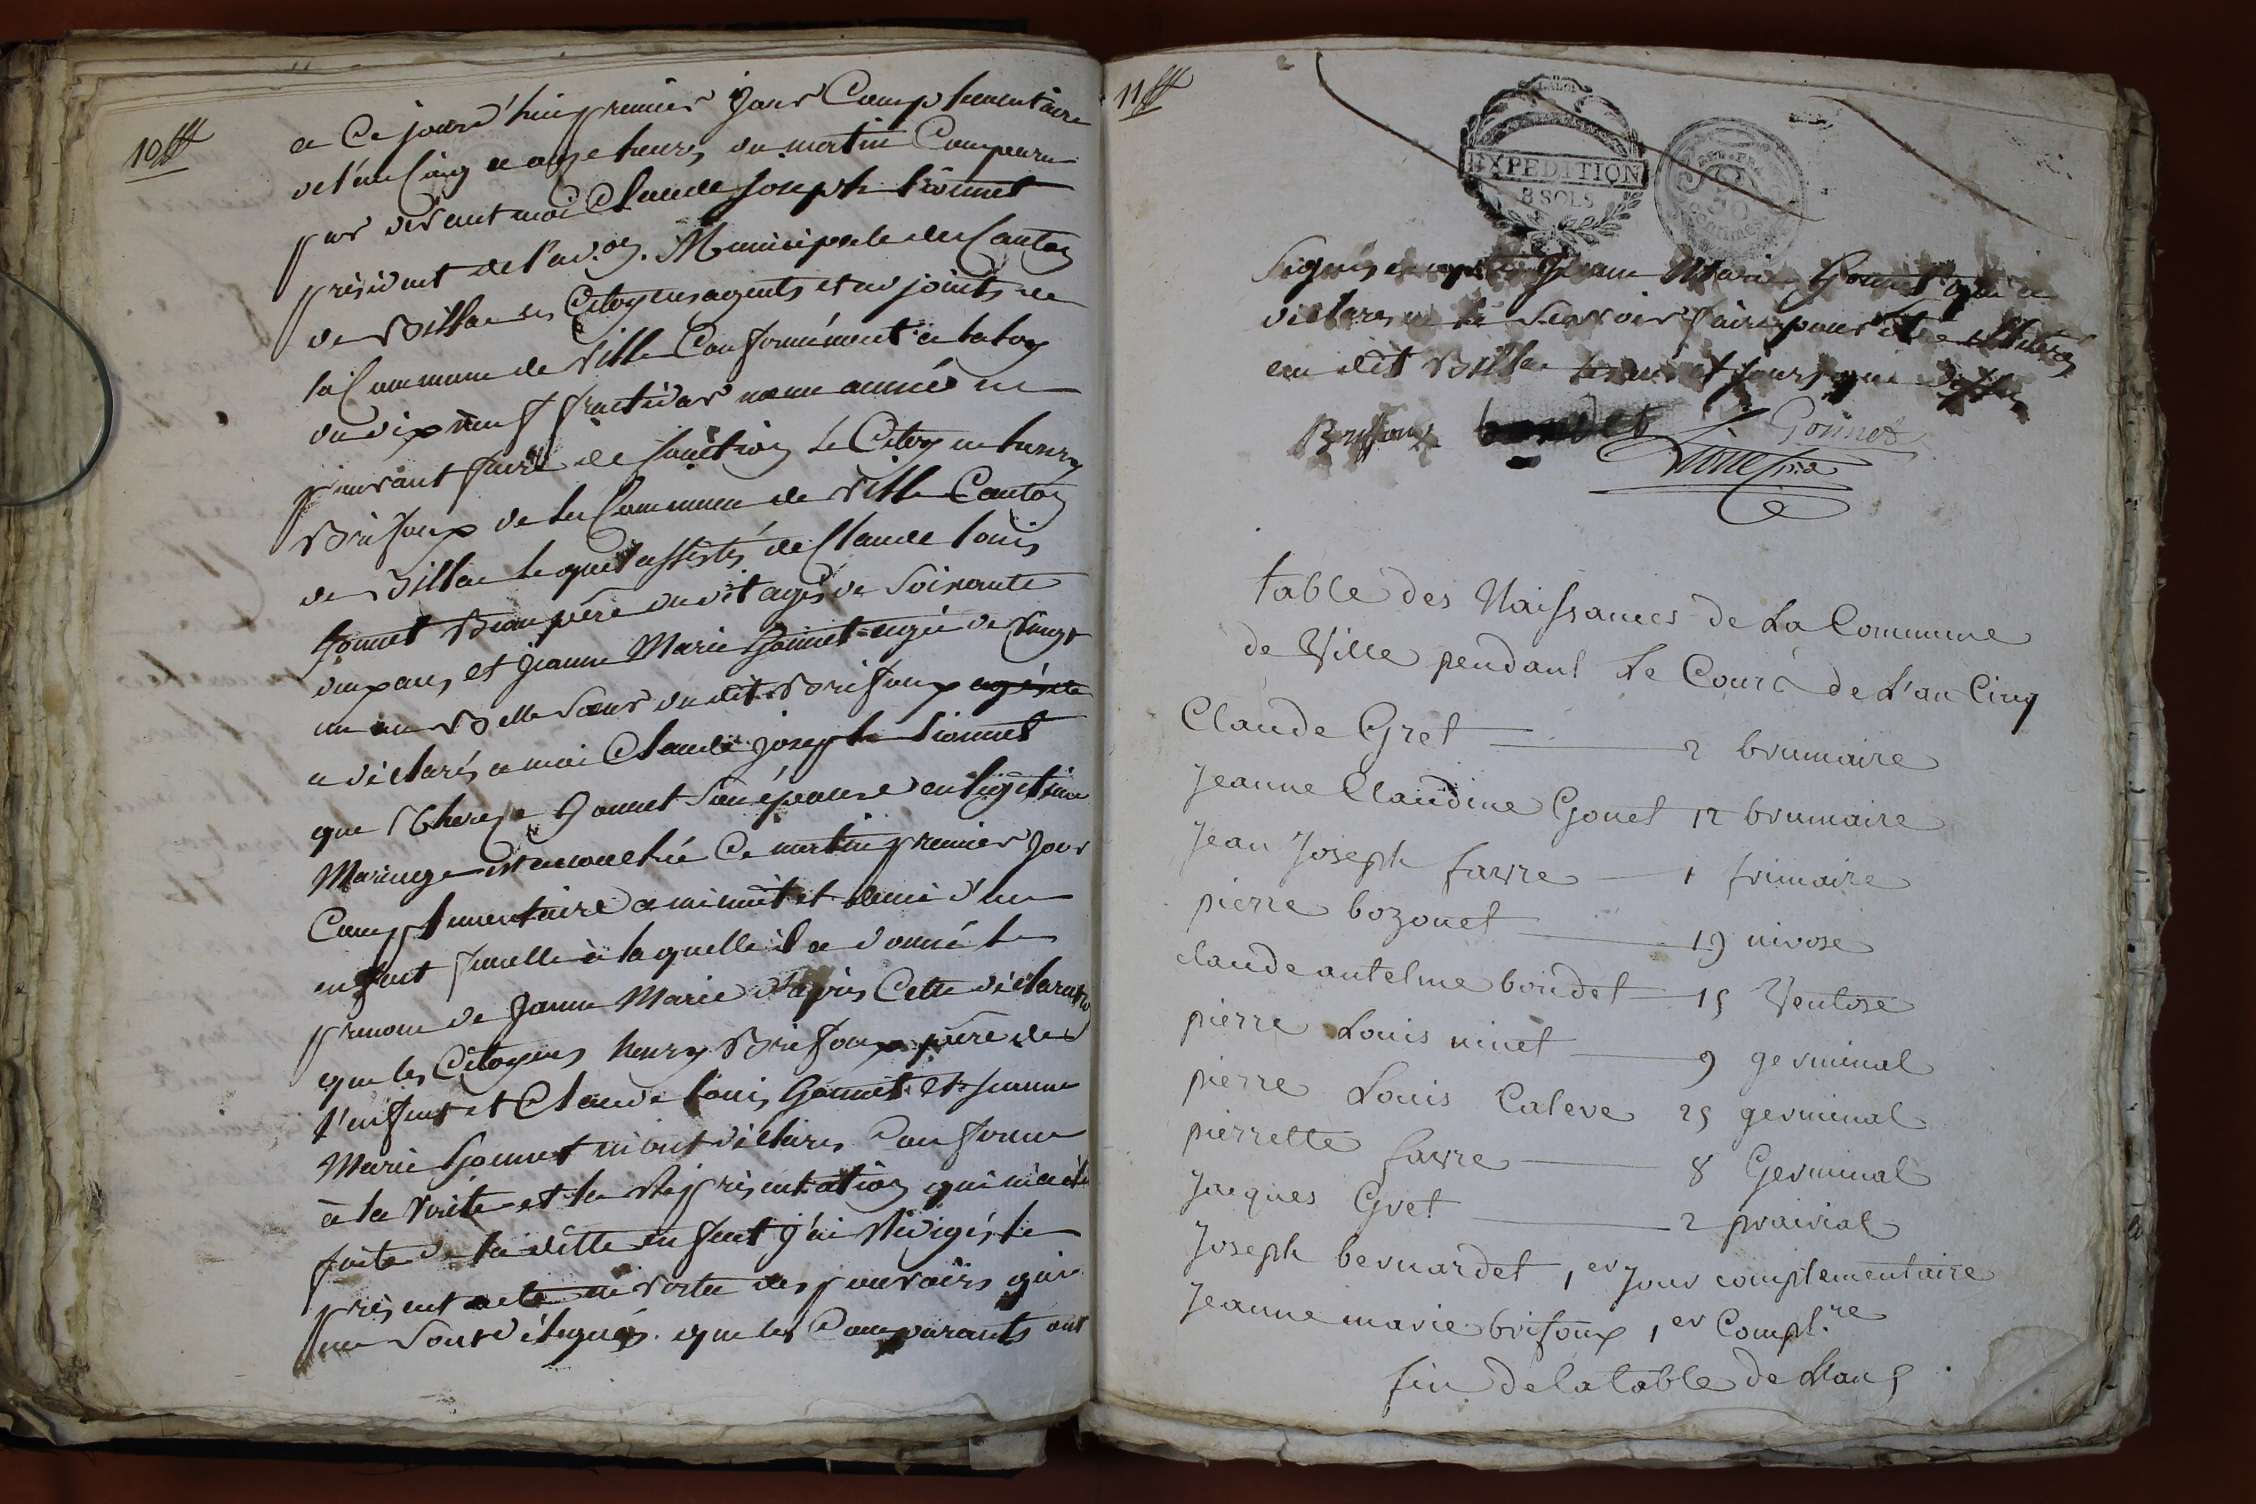 10
a Ce jourd'hui premier Jour Complementaire
de l'an Cinq a onze heures du matin Comparu
par devant moi Claude Joseph Lionnet
président de l'ad.on. Municipale du Canton
de Billac les Citoyens agents et adjoints de
la Commune de Ville Conformément a la loy
du dix neuf fructidor meme année ne
pouvant faire de fonction Le Citoyen henry
Brifoux de la Commune de Ville Canton
de Billac lequel assistés de Claude Louis
Gonnet Beau père du dit agés de Soixante
deux ans, et Jeanne Marie Gonnet agée de vingt
un an Belle Sœur du dit Brifoux agés de
a déclarés a moi Claude Joseph Lionnet
que Therese Gonnet Son épouse en légitime
Mariage est accouchée Ce matin premier Jour
Complimentaire a minuit et demi d'un
enfant femelle à laquelle il a donné le
prenom de Jeanne Marie d'après Cette déclaration
que les Citoyens henry Brifoux père de
l'enfant et Claude Louis Gonnet et Jeanne
Marie Gonnet m'ont déclarés Conforme
à la Vérité et la Représentation qui m'a été
faite de la ditte enfant j'ai Rédigés le
présent acte en Vertu des pouvoirs qui
me Sont délegués. que les Comparants ont
11
LA LOI
EXPEDITION
8 SOLS
REP. FRA.
Signés excepté Jeanne Marie Gonnet qui a
déclarés ne le Savoir faire pour être illiterée
au dit Billac les an et jour que dessus
Brifoux bondet Gonnet
Lionnet pdt
table des Naissances de La Commune
de Ville pendant Le Cours de L'an Cinq
Claude Gret 2 brumaire
Jeanne Claudine Gonet 12 brumaire
Jean Joseph favre 1 frimaire
pierre bozonet 19 nivose
claude antelme bondet 15 Ventose
pierre Louis ninet 9 germinal
pierre Louis Caleve 25 germinal
pierrette favre 8 Germinal
Jacques Gret 2 prairial
Joseph bernardet 1,er Jour complementaire
Jeanne marie brifoux 1,er Compl.re
fin de la table de L'an 5